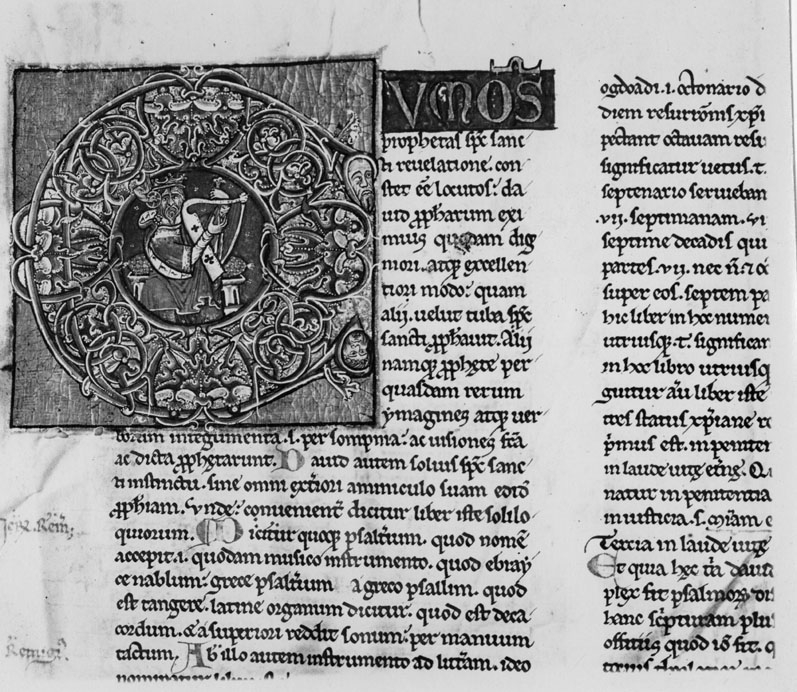 CUM OMS
prophetas spc sanc
ti reuelatione con
stet eē locutos: da
uid ppharum exi
mius quodam dig
niori. atq; excellen
tiori modo: quam
alij. uelut tuba spc
sancti pphauit. Alij
namq; pphete per
quasdam rerum
ymagines atq; uer
borum integumenta. s. per sompnia: ac uisiones. fca
ac dicta pphetarunt. Dauid autem solius spc sanc
ti instinctu. sine omni extiori aminiculo suam edid
pphiam. vnde: conuenient dicitur liber iste solilo
quiorum. Dicitur quoq; psaltium. quod nomē
accepit. i. quodam musico instrumento. quod ebray
ce nablum: grece psaltium a greco psallin. quod
est tangere. latine organum dicitur. quod est deca
cordum. & a superiori reddit sonum: per manuum
tactum. Ab illo autem instrumento ad litam. ideo
ogdoadi. i. octonario d
diem resurronis xpi
pectant octauam resu
significatur uetus. t.
septenario serueban
.vii. septimanam. vi
septime decadis qui
partes. vii. nec n̄. 7
super eos. septem pa
hic liber in hoc numer
utriusq;. t. significan
in hoc libro utriusq
guitur au liber iste
tres status xpiane re
pmus est. in peniten
in laude uite etne. Qu
natur in penitentia
in iusticia. s. mīam e
Tercia in laude uite
Et quia hec dauid
plex fit psalmorū di
hanc scpturam plu
offitiis quod fit. q